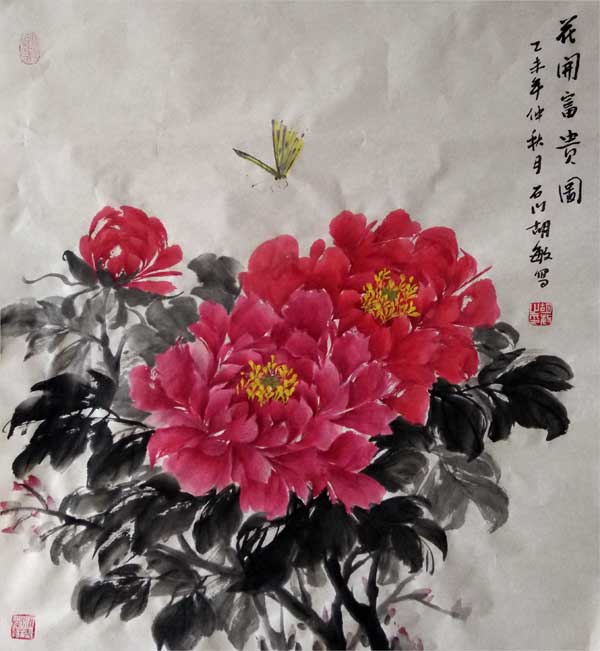 花開富贵圖
乙未年仲秋月石川胡敏寫